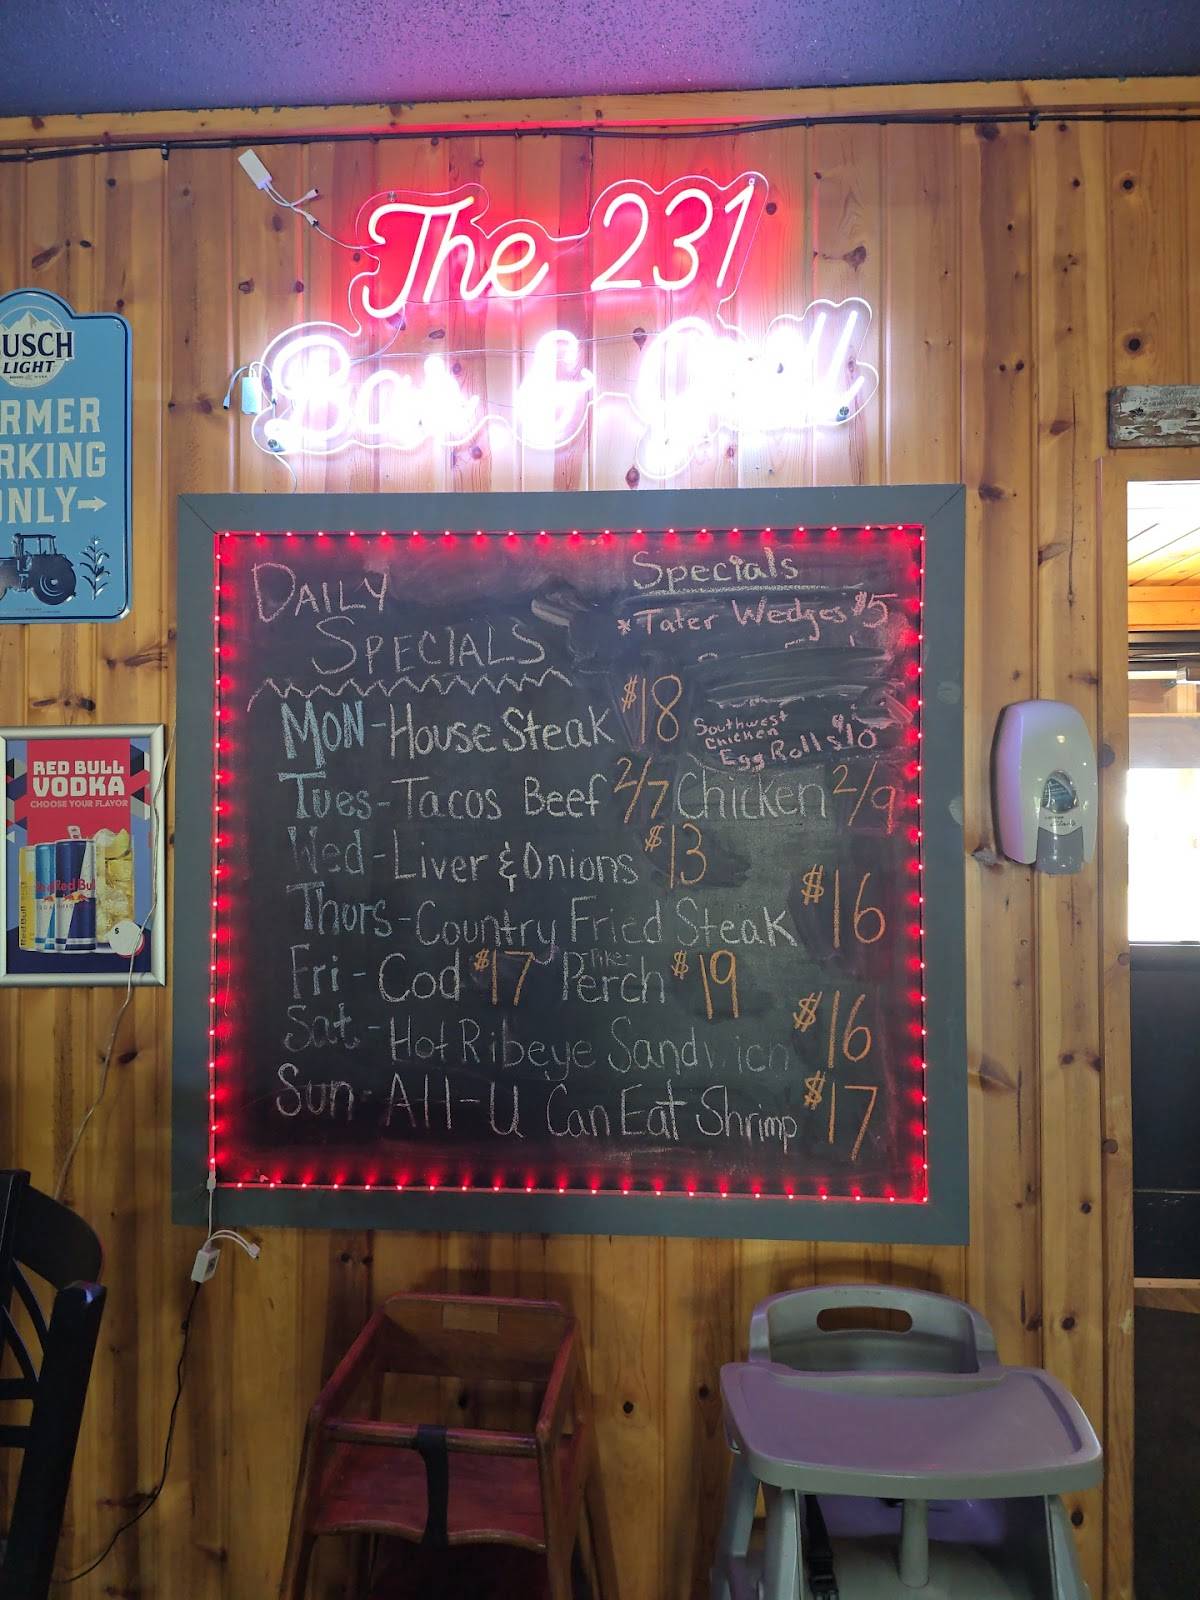 The 231
Bar & Grill
BUSCH
LIGHT
RMER
RKING
ONLY→
RED BULL
VODKA
CHOOSE YOUR FLAVOR
Red Bull
DAILY
SPECIALS
Specials
* Tater Wedges $5
Southwest
Chicken
Egg Rolls $10
MON - House Steak $18
Tues - Tacos Beef 2/7 Chicken 2/9
Wed - Liver & Onions $13
Thurs - Country Fried Steak $16
Fri - Cod $17 Pike Perch $19
Sat - Hot Ribeye Sandwich $16
Sun - All-U Can Eat Shrimp $17